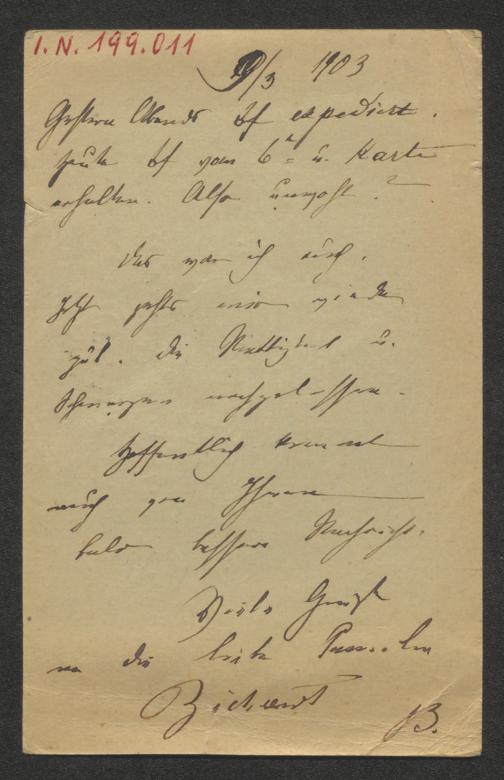 I.N. 199.011
9/3 1903
Gestern Abends Bf expediert.
Heute Bf vom 6t u. Karte
erhalten. Also unwohl?
Das war ich auch.
Jetzt gehts mir wieder
gut. Die Mattigkeit u.
Schmerzen nachgelassen.
Hoffentlich kommt
auch von Ihnen
bald bessere Nachricht.
Viele Grüße
an die liebe Familie
B.